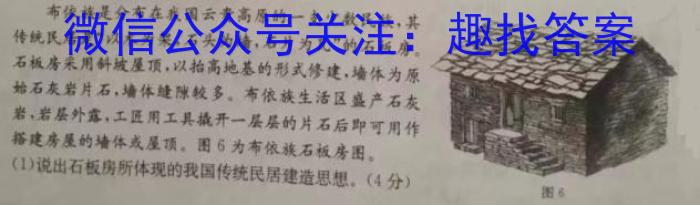 布依族是分布在我国云贵高原的一支少数民族,其
传统民居
微信公众号关注：趣找答案
石板房。
石板房采用斜坡屋顶,以抬高地基的形式修建,墙体为原
始石灰岩片石,墙体缝隙较多。布依族生活区盛产石灰
岩,岩层外露,工匠用工具撬开一层层的片石后即可用作
搭建房屋的墙体或屋顶。图6为布依族石板房图。
(1)说出石板房所体现的我国传统民居建造思想。(4分)
图6